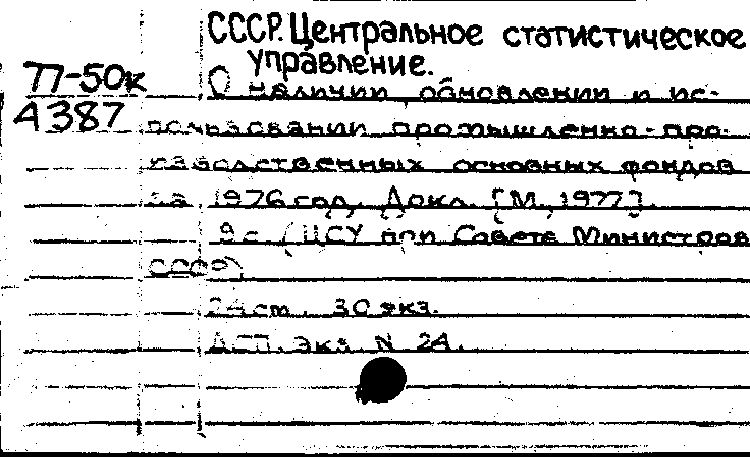 СССР. Центральное статистическое
управление.
77-50к О наличии, обновлении и ис-
4387 пользовании промышленно-про-
изводственных основных фондов
за 1976 год. Докл. [М., 1977].
9 с. (ЦСУ при Совете Министров
СССР).
24 ст. 30 экз.
ДСП. Экз. N 24.